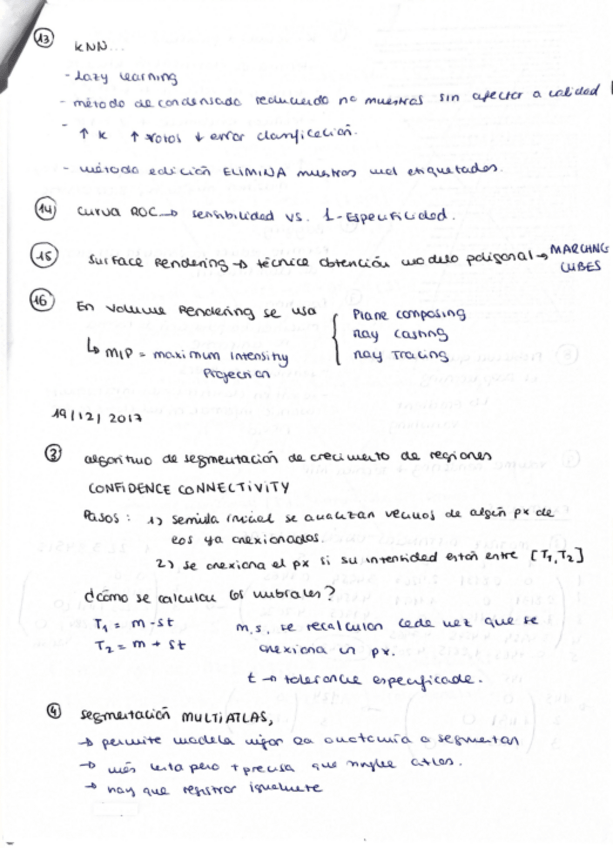 13 KNN...
- Lazy learning
- método de condensado reduciendo no muestras sin afectar a calidad
- ↑ K ↑ votos ↓ error clasificación.
- método edición ELIMINA muestras mal etiquetadas.
14 Curva ROC → sensibilidad vs. 1-Especificidad.
15 Surface Rendering → técnica obtención modelo poligonal → MARCHNG
CUBES
16 En Volume Rendering se usa { Plane composing
Ray casting
↳ MIP = maximum intensity Ray Tracing
Projection
19/12/2017
3 algoritmo de segmentación de crecimiento de regiones
CONFIDENCE CONNECTIVITY
Pasos: 1) Semilla inicial se analizan vecinos de algún px de
los ya anexionados.
2) se anexiona el px si su intensidad están entre [T₁,T₂]
¿cómo se calculan los umbrales?
T₁ = m - st m, s, se recalculan cada vez que se
T₂ = m + st anexiona un px.
t → tolerancia especificada.
4 Segmentación MULTIATLAS,
→ permite modela mejor la anatomía a segmentar
→ más lenta pero + precisa que single atlas.
→ hay que registrar igualmente